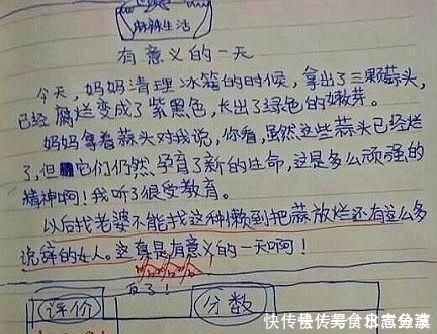 麻辣生活
有意义的一天
今天，妈妈清理冰箱的时候，拿出了三颗蒜头，
已经腐烂变成了紫黑色，长出了绿色的嫩芽。
妈妈拿着蒜头对我说，你看，虽然这些蒜头已经烂
了，但它们仍然孕育了新的生命，这是多么顽强的
精神啊！我听了很受教育。
以后找老婆不能找这种懒到把蒜放烂还有这么多
说辞的女人。这真是有意义的一天啊！
评价
分数